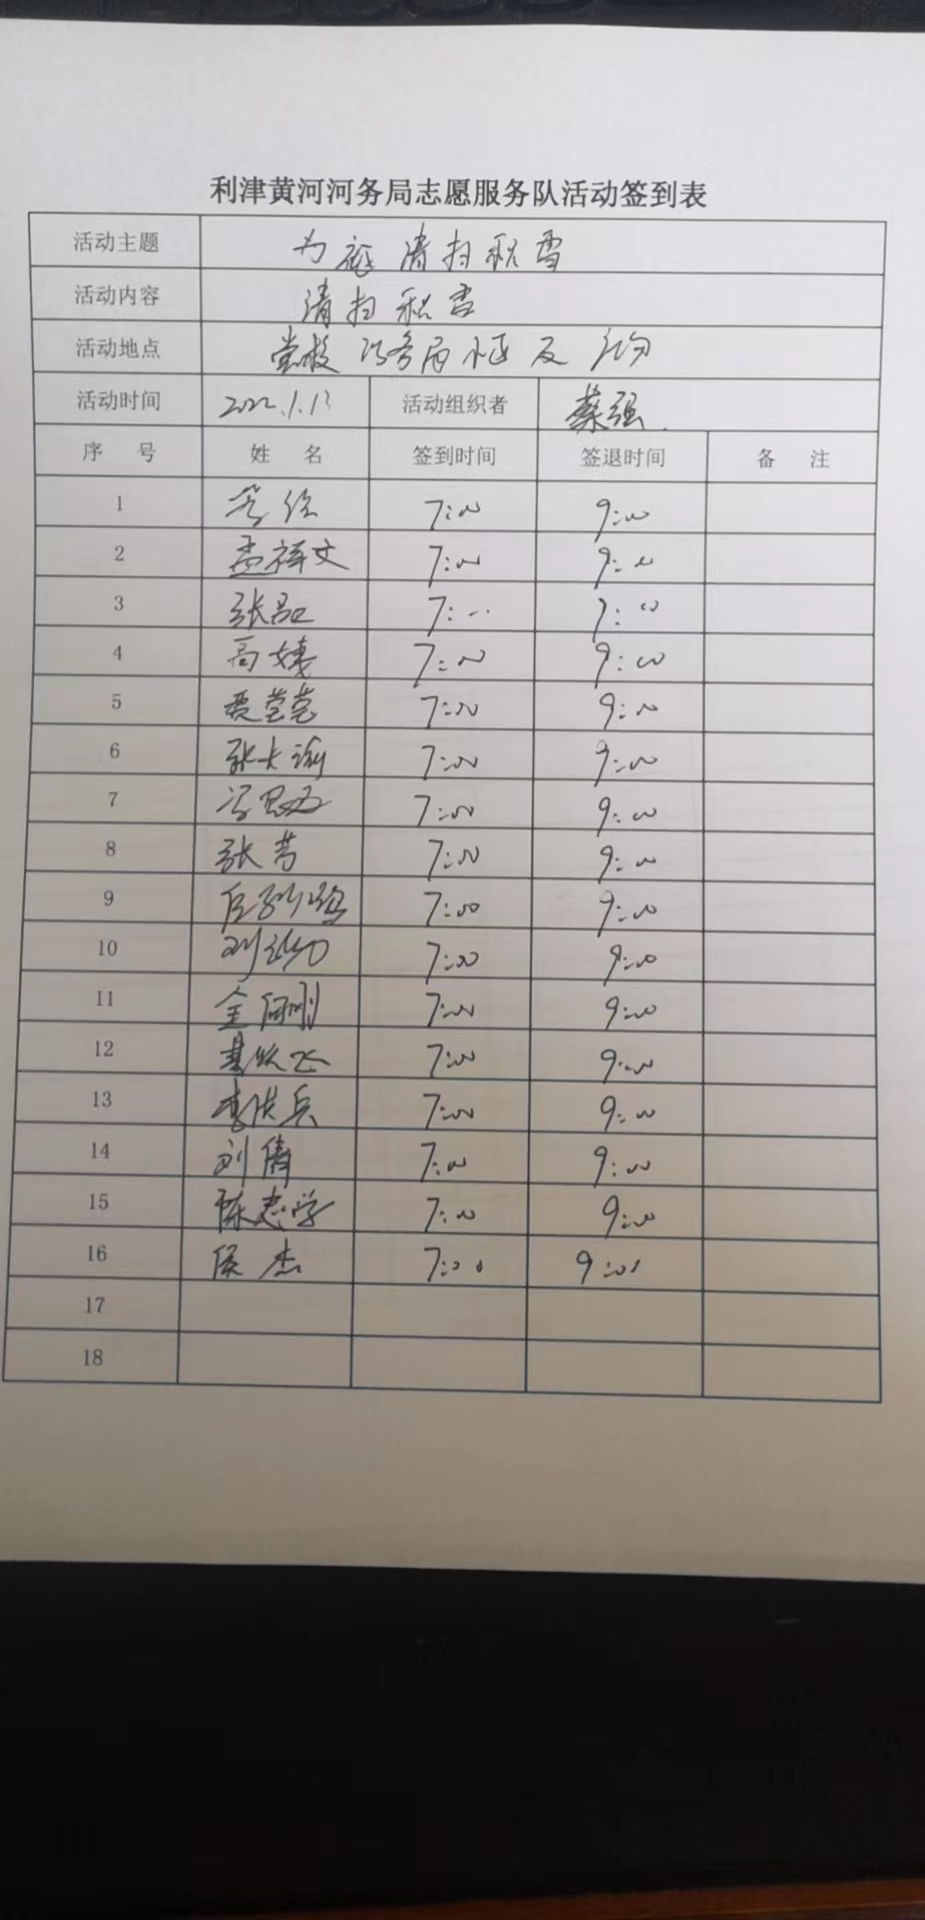 利津黄河河务局志愿服务队活动签到表
活动主题 清扫积雪
活动内容 清扫积雪
活动地点 党校 河务局 及
活动时间 2022.1.13 活动组织者 蔡强
序 号 姓 名 签到时间 签退时间 备 注
1 7:00 9:00
2 孟祥文 7:00 9:00
3 7:00 9:00
4 高婕 7:00 9:00
5 贾莹莹 7:00 9:00
6 7:00 9:00
7 7:00 9:00
8 张芳 7:00 9:00
9 7:00 9:00
10 7:00 9:00
11 7:00 9:00
12 7:00 9:00
13 李洪兵 7:00 9:00
14 刘倩 7:00 9:00
15 陈志学 7:00 9:00
16 侯杰 7:00 9:00
17
18